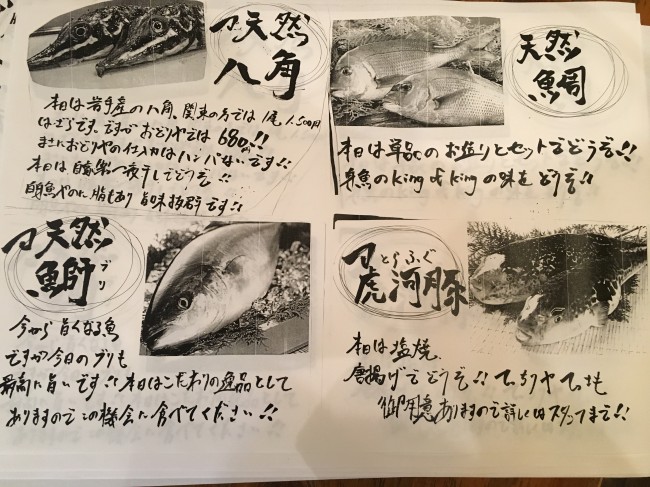 天然
八角
本日は岩手産の八角、関東の方では1尾1,500円
はざらです。ですがおどりやでは680円!!
まさにおどりやの仕入力はハンパないです!!
本日は自家製一夜干しでどうぞ!!
白身魚やのに脂もあり旨味抜群です!!
天然
鯛
本日は単品のお造りとセットでどうぞ!!
魚のKing of Kingの味をどうぞ!!
天然
鰤
ブリ
今から旨くなる魚
ですが今日のブリも
最高に旨いです!!本日はこだわりの逸品として
ありますのでこの機会に食べてください!!
とらふぐ
虎河豚
本日は塩焼、
唐揚げでどうぞ!!てっちりやてっさも
御用意ありますので詳しくはスタッフまで!!